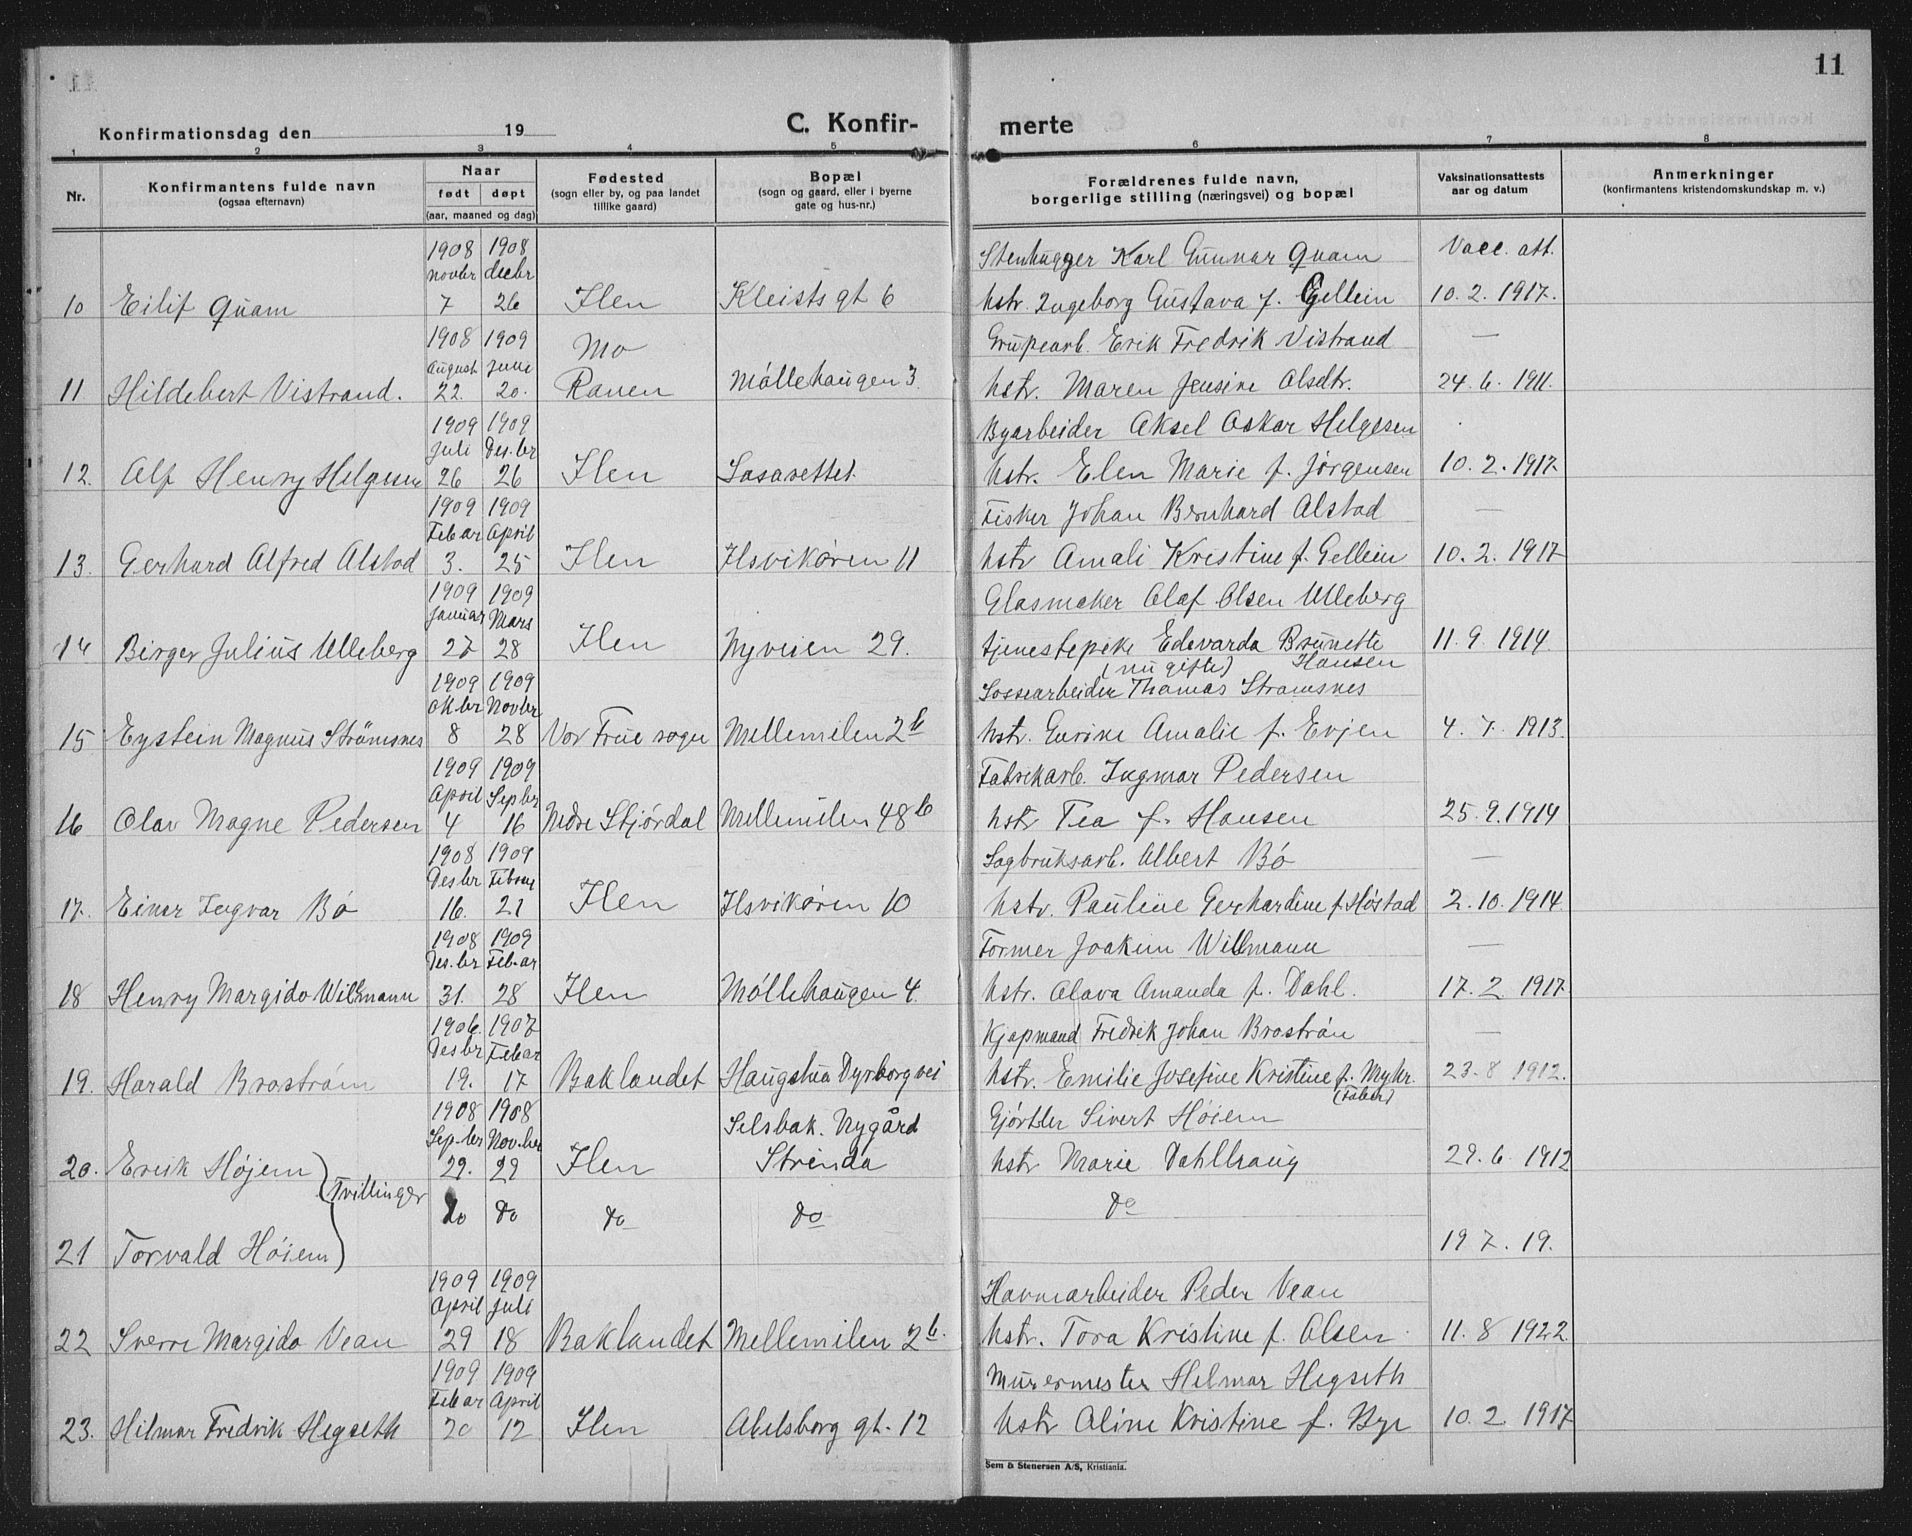 11
Konfirmationsdag den 19
C. Konfir- merte
1 2 3 4 5 6 7 8
Nr. Konfirmantens fulde navn (ogsaa efternavn) Naar født døpt (aar, maaned og dag) Fødested (sogn eller by, og paa landet tillike gaard) Bopæl (sogn og gaard, eller i byerne gate og hus-nr.) Forældrenes fulde navn, borgerlige stilling (næringsvei) og bopæl Vaksinationsattests aar og datum Anmerkninger (konfirmantens kristendomskundskap m. v.)
1908 1908 Stenhugger Karl Gunnar Quam Vacc. att.
novbr decbr
10 Eilif Quam 7 26 Ilen Kleists gt 6 hstr. Ingeborg Gustava f. Gellein 10. 2. 1917.
1908 1909 Mo Grupearb. Erik Fredrik Vistrand —
August Juni
11 Hildebert Vistrand. 22. 20. Ranen Møllehaugen 3. hstr. Maren Jensine Olsdtr. 24. 6. 1911.
1909 1909 Byarbeider Aksel Oskar Helgesen
Juli Des.br
12. Alf Henry Helgesen 26 26 Ilen Lasarettet hstr. Elen Marie f. Jørgensen 10. 2. 1917.
1909 1909 Fisker Johan Bernhard Alstad —
Feb.ar April
13. Gerhard Alfred Alstad 3. 25 Ilen Ilsvikøren 11 hstr Amali Kristine f. Gellein 10. 2. 1917
1909 1909 Glasmaker Olaf Olsen Ulleberg
Januar Mars
14 Birger Julius Ulleberg 27 28 Ilen Nyveien 29. tjenestepike Edevarda Brunette 11. 9. 1914.
(nu gifte) Hansen
1909 1909 Lossearbeider Thomas Strømsnes
Okbr Novbr
15 Eystein Magnus Strømsnes 8 28 Vor Frue sogn Mellemilen 2b hstr. Gurine Amalie f. Evjen 4. 7. 1913.
1909 1909 Fabrikarb. Ingmar Pedersen
April Sepbr
16 Olav Magne Pedersen 4 16 Nedre Stjørdal Mellemilen 48b hstr Tea f. Hansen 25. 9. 1914
1908 1909 Sagbruksarb. Albert Bø —
Desbr Febr
17. Einar Ingvar Bø 16. 21 Ilen Ilsvikøren 10 hstr. Pauline Gerhardine f. Høstad 2. 10. 1914.
1908 1909 Former Joakim Willmann —
Des.br Feb.ar
18 Henry Margido Willmann 31. 28 Ilen Møllehaugen 4. hstr. Olava Amanda f. Dahl. 17. 2 1917.
1906. 1907 Kjøpmand Fredrik Johan Brostrøn —
Desbr Feb.ar
19. Harald Brostrøm 19. 17 Baklandet Haugstua Dyrborg vei hstr. Emilie Josefine Kristine f. Myhr. 23. 8 1912.
(Faber)
1908 1908 Selsbak. Nygård Gjørtler Sivert Høiem
Sep.br Nov.ber
20. Erik Højem 29. 29 Ilen Strinda hstr Marie Dahlhaug 29. 6 1912
(Tvillinger do do do do do
21 Torvald Høiem) 19 7. 19.
1909 1909 Havnearbeider Peder Vean
April Juli
22 Sverre Margido Vean 29 18 Baklandet Mellemilen 2b. hstr. Tora Kristine f. Olsen 11. 8 1922
1909 1909 Murermester Helmar Hegseth
Feb.ar April
23. Hilmar Fredrik Hegseth 20 12 Ilen Abelsborg gt. 12 hstr Aline Kristine f. Bye 10. 2 1917
Sem & Stenersen A/S, Kristiania.